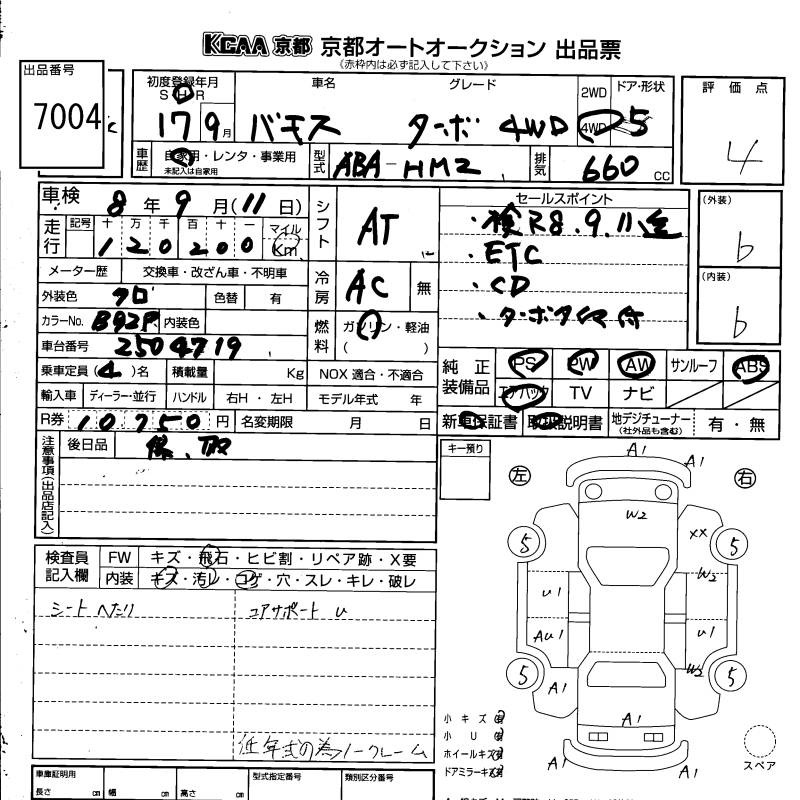 KCAA 京都 京都オートオークション 出品票
(赤枠内は必ず記入して下さい)
出品番号
7004
初度登録年月
S H R
17 9月
車名
グレード
2WD
4WD
ドア・形状
5
評価点
4
ターボ 4WD
車歴
自家用・レンタ・事業用
未記入は自家用
型式
ABA-HM2
排気
660 cc
車検
8年 9月(11日)
走行
記号 十 万 千 百 十 一
120200
マイル
Km
シフト
AT
セールスポイント
・検R8.9.11迄
・ETC
・CD
(外装)
b
(内装)
b
メーター歴
交換車・改ざん車・不明車
外装色
クロ
色替
有
冷房
AC
無
カラーNo.
B92P
内装色
燃料
ガソリン・軽油
( )
車台番号
2504719
乗車定員 (4)名
積載量
Kg
NOX 適合・不適合
輸入車
ディーラー・並行
ハンドル
右H・左H
モデル年式
年
純正装備品
PS
PW
AW
サンルーフ
ABS
エアバック
TV
ナビ
R券
10750円
名変期限
月 日
新車保証書
取扱説明書
地デジチューナー
(社外品も含む)
有・無
注意事項(出品店記入)
後日品
保、取
キー預り
左
右
検査員記入欄
FW
キズ・飛石・ヒビ割・リペア跡・X要
内装
キズ・汚レ・コゲ・穴・スレ・キレ・破レ
シートへたり
コアサポート U
近年式の為ノークレーム
A1
A1
W2
XX
5
5
W2
U1
AU1
U1
5
5
W2
A1
A1
A1
A1
A1
小キズ有
小U有
ホイールキズ有
ドアミラーキズ有
スペア
車庫証明用
長さ cm
幅 cm
高さ cm
型式指定番号
類別区分番号